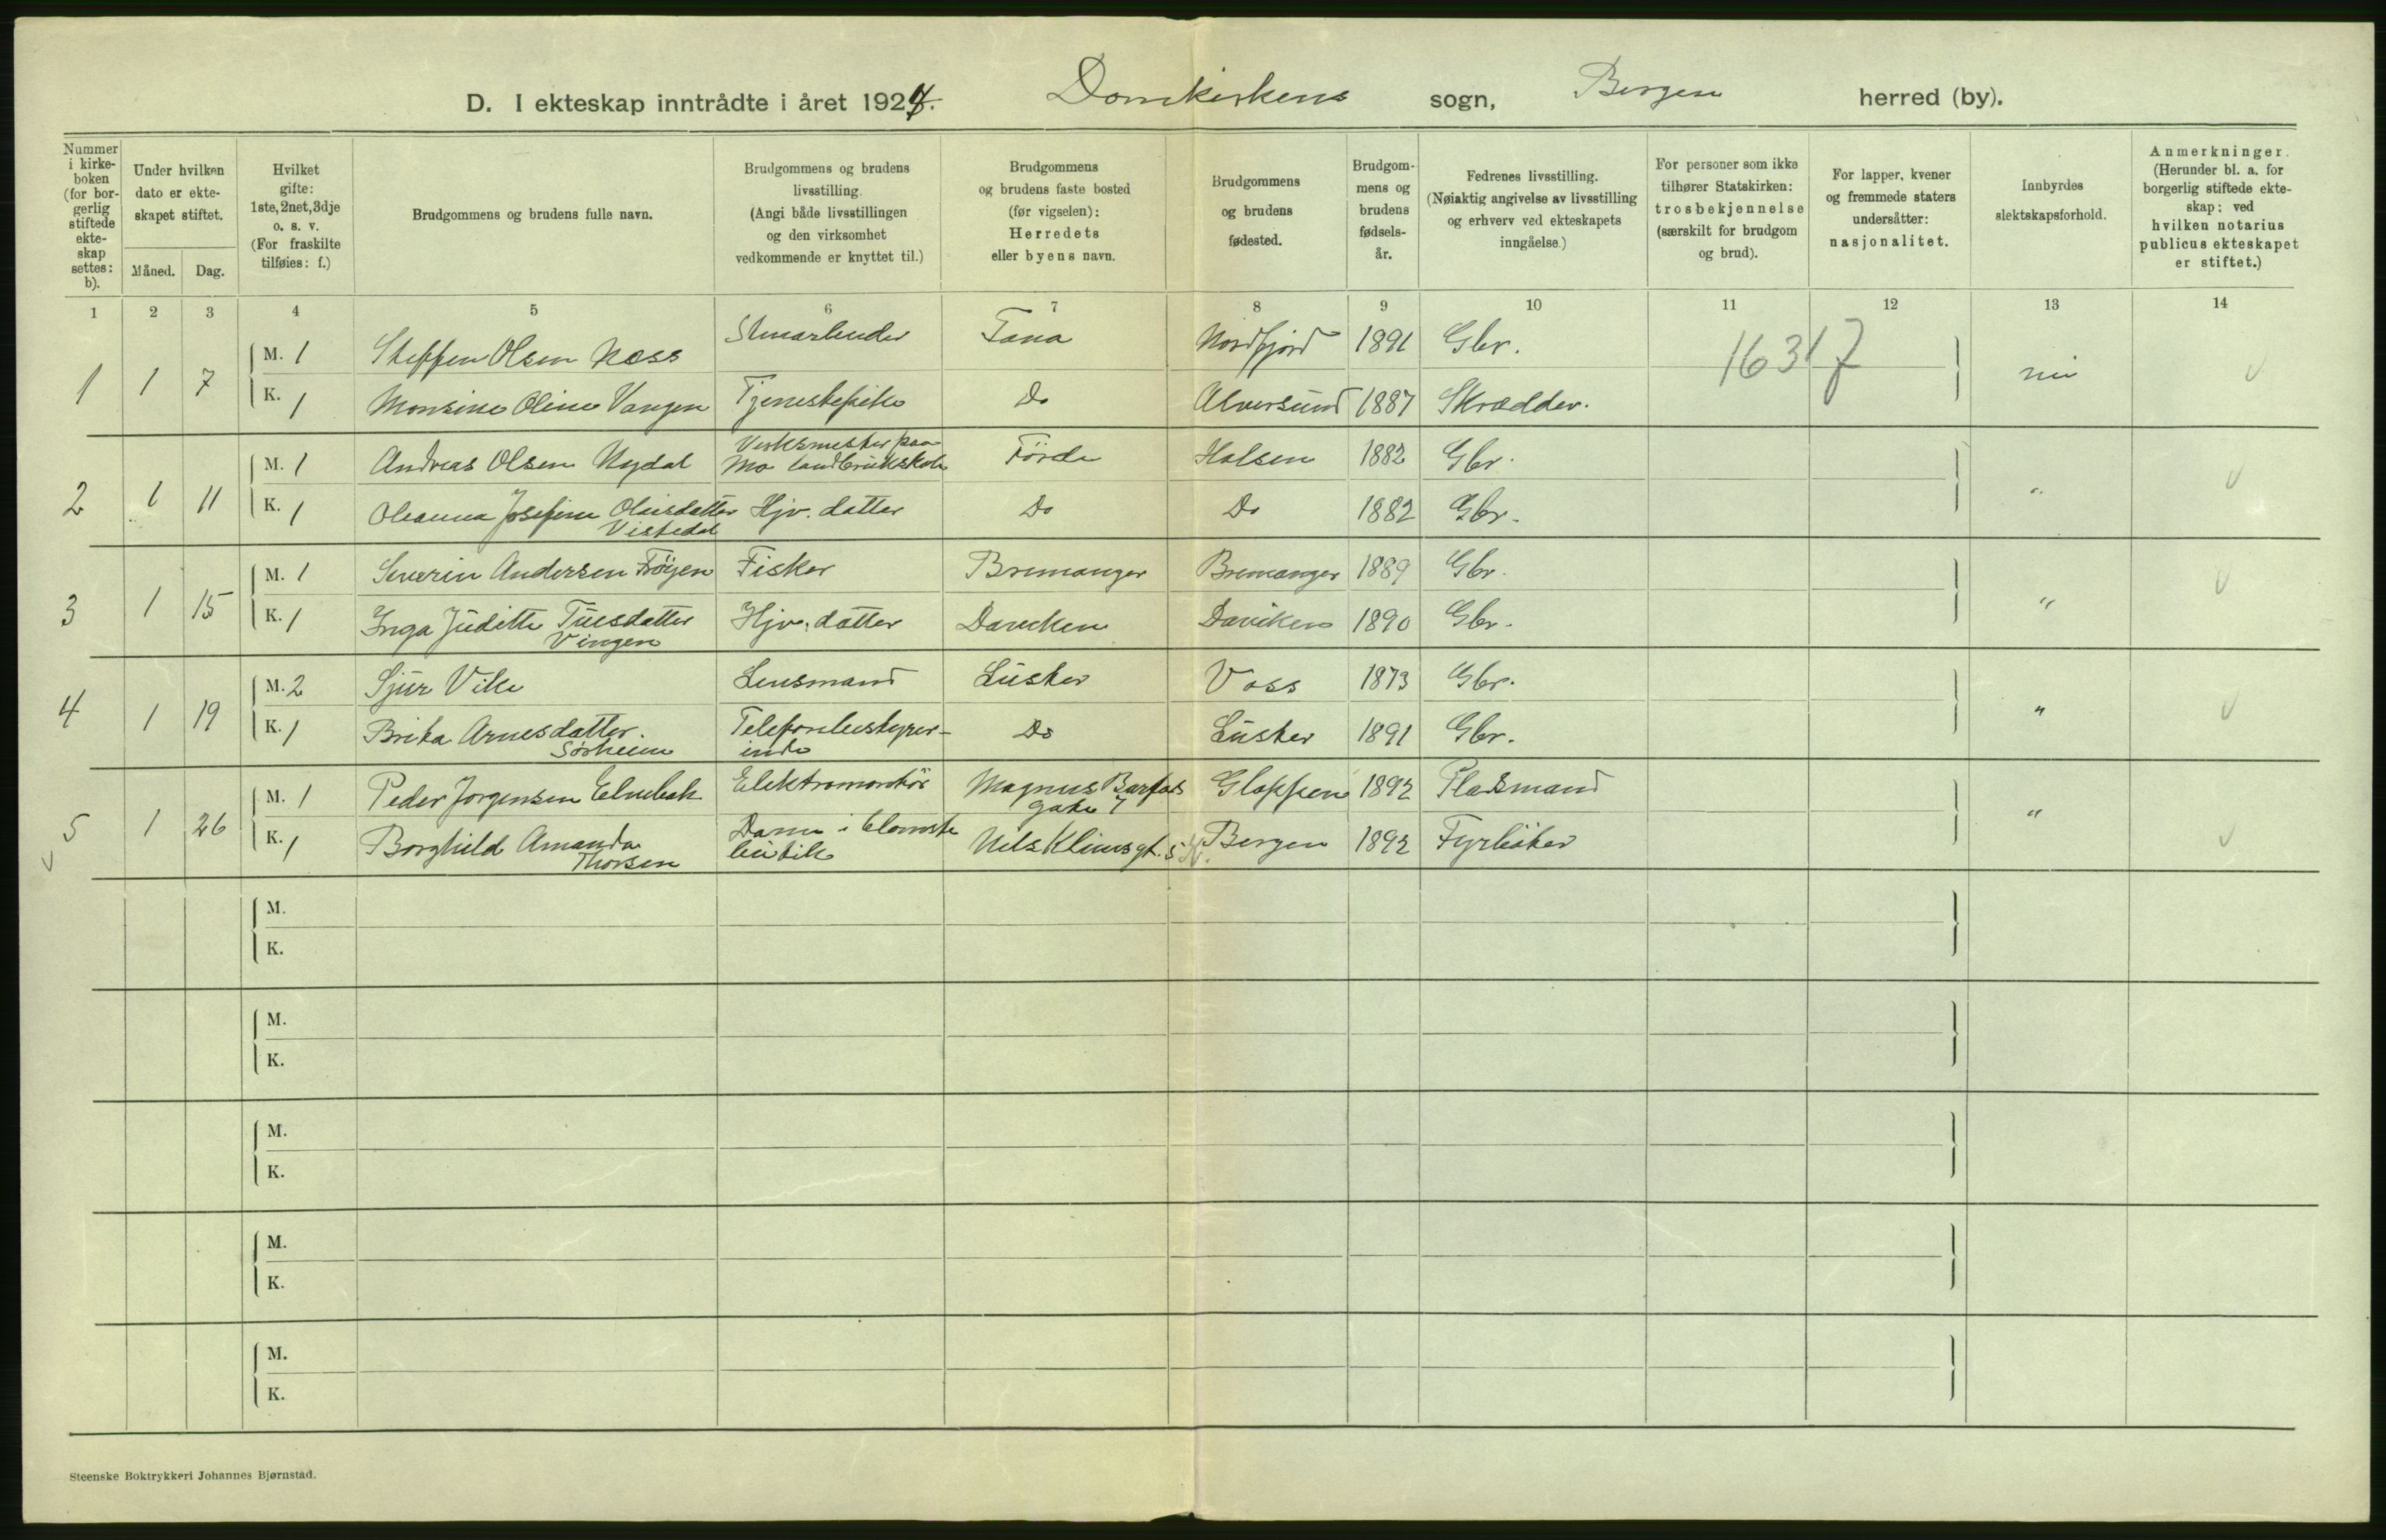 D. I ekteskap inntrådte i året 1924. Domkirkens sogn, Bergen herred (by).
Nummer i kirke-boken (for bor-gerlig stiftede ekte-skap settes: b).
Under hvilken dato er ekte-skapet stiftet.
Måned. Dag.
Hvilket gifte: 1ste, 2net, 3dje o. s. v. (For fraskilte tilføies: f.)
Brudgommens og brudens fulle navn.
Brudgommens og brudens livsstilling. (Angi både livsstillingen og den virksomhet vedkommende er knyttet til.)
Brudgommens og brudens faste bosted (før vigselen): Herredets eller byens navn.
Brudgommens og brudens fødested.
Brudgom-mens og brudens fødsels-år.
Fedrenes livsstilling. (Nøiaktig angivelse av livsstilling og erhverv ved ekteskapets inngåelse.)
For personer som ikke tilhører Statskirken: trosbekjennelse (særskilt for brudgom og brud).
For lapper, kvener og fremmede staters undersåtter: nasjonalitet.
Innbyrdes slektskapsforhold.
Anmerkninger. (Herunder bl. a. for borgerlig stiftede ekte-skap: ved hvilken notarius publicus ekteskapet er stiftet.)
1 2 3 4 5 6 7 8 9 10 11 12 13 14
1 1 7 M. 1 Steffen Olsen Næss Stuearbeider Fana Nordfjord 1891 Gbr. 16317
K. 1 Monsine Oline Vangen Tjenestepike Do Alversund 1887 Skrædder.
2 1 11 M. 1 Andreas Olsen Nydal Verksmester paa Mo landbrukskole Förde Holsen 1882 Gbr. "
K. 1 Oleanna Josefine Olaisdatter Vistedal Hjv. datter Do Do 1882 Gbr.
3 1 15 M. 1 Severin Andersen Fröyen Fisker Bremanger Bremanger 1889 Gbr. "
K. 1 Inga Juditte Vingen Hjv. datter Daviken Daviken 1890 Gbr.
4 1 19 M. 2 Sjur Vike Lensmand Luster Voss 1873 Gbr. "
K. 1 Brita Arnesdatter Sörheim Telefonbestyrer-inde Do Luster 1891 Gbr.
5 1 26 M. 1 Peder Jorgensen Elvebak Elektromontör Magnus Barfods gate 7 Gloppen 1892 Pladsmand "
K. 1 Borghild Amanda Thorsen Dame i blomsterbutik Nels Klimsgt. 5 Bergen 1892 Fyrböter
M.
K.
M.
K.
M.
K.
M.
K.
M.
K.
Steenske Boktrykkeri Johannes Bjørnstad.